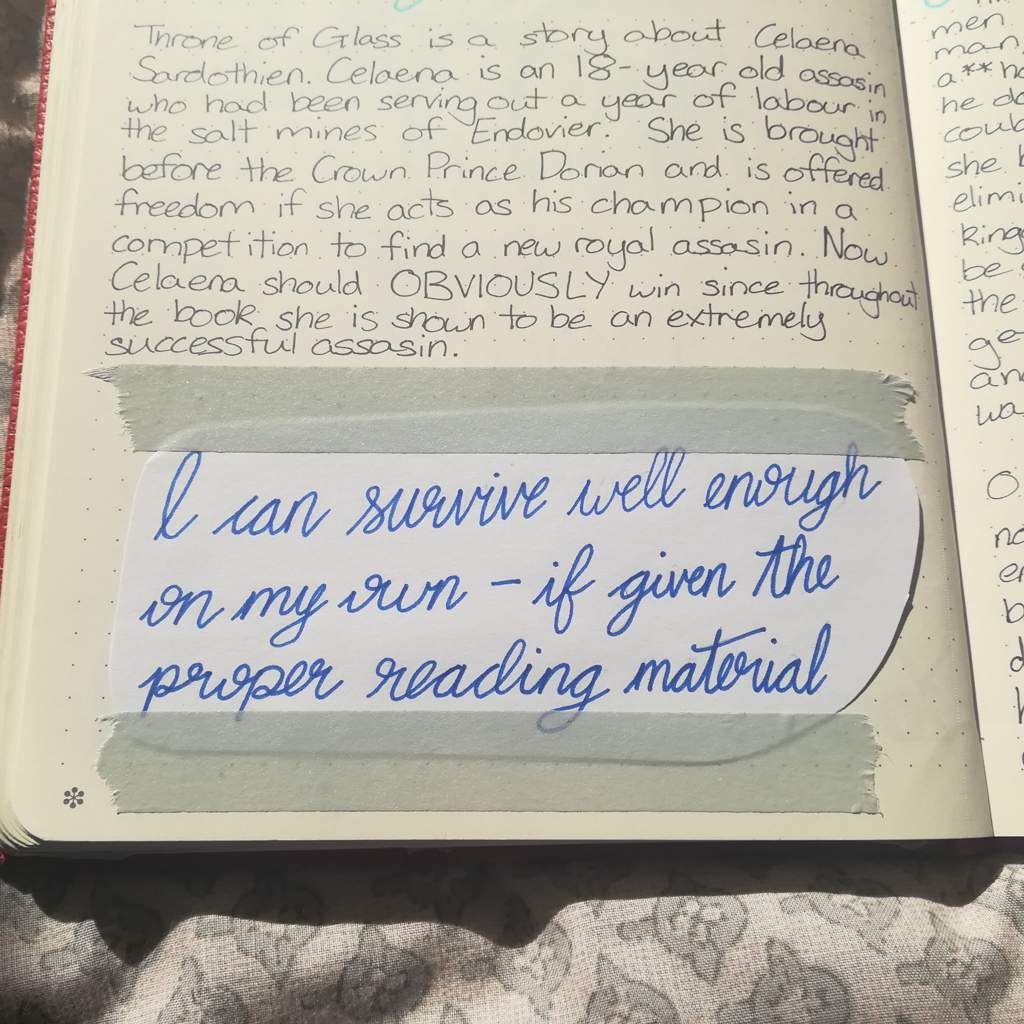 Throne of Glass is a story about Celaena
Sardothien. Celaena is an 18-year old assasin
who had been serving out a year of labour in
the salt mines of Endovier. She is brought
before the Crown Prince Dorian and is offered
freedom if she acts as his champion in a
competition to find a new royal assasin. Now
Celaena should OBVIOUSLY win since throughout
the book she is shown to be an extremely
successful assasin.
I can survive well enough
on my own – if given the
proper reading material
men
man
a**
he
she
the
and